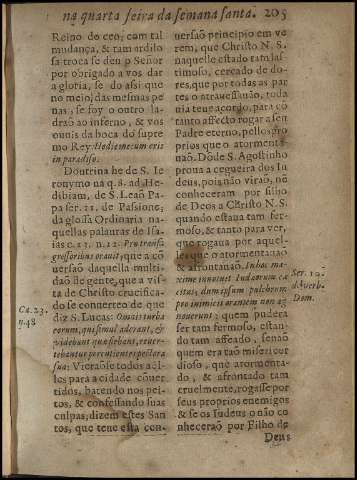 na quarta feira da semana santa. 205
Reino do ceo; com tal
mudança, & tam ardilo
sa troca se deu o Senor
por obrigado a vos dar
a gloria, se do assi que
no meio, das mesmas pe
nas, se foy o outro la-
drão ao inferno, & vos
ouuis da boca do supre
mo Rey: Hodie mecum eris
in paradiso.
Doutrina he de S. Ie
ronymo na q. 8. ad He-
dibiam, de S. Leão Pa-
pa ser. 11. de Passione,
da glossa Ordinaria na-
quellas palauras de Isa-
ias c. 53. n. 12. Pro transg
gressoribus orauit, que a cõ
uersaõ daquella multi-
daõ de gente, que a vis-
ta de Christo crucifica-
do se conuerteo de que
diz S. Lucas: Omnis turba
eorum, qui simul aderant, &
videbant quæ fiebant, reuer-
tebantur percutientes pectora
sua: Vieraõse todos aq̃l
los para a cidade cõuer
tidos, batendo nos pei-
tos, & confessando suas
culpas, dizem estes San
tos, que teue esta con-
Ca. 23.
n. 48
uersaõ principio em ve
rem, que Christo N. S.
naquelle estado tam las
timoso, cercado de do-
res, que por todas as par
tes o atrauessauão, toda
uia teue acordo, para cõ
tanto affecto rogar a seu
Padre eterno, pellos pro
prios que o atormenta-
uaõ. Dõde S. Agostinho
proua a cegueira dos Iu
deus, pois naõ virão, nẽ
conheceram por filho
de Deos a Christo N. S.
quando estaua tam fer-
moso, & tanto para ver,
que rogaua por aquel-
les que o atormentauaõ
& afrontauaõ. In hoc ma-
xime innotuit Iudæorum cæ
citas, dum ipsum pulchrum
pro inimicis orantem non ag
nouerunt: quem pudera
ser tam fermoso, estan-
do tam afeado, senaõ
quem era taõ misericor
dioso, que atormenta-
do, & afrontado tam
cruelmente, rogasse por
seus proprios enemigos
& se os Iudeus o não co
nheceraõ por Filho de
Ser. 19.
de verb.
Dom.
Deus